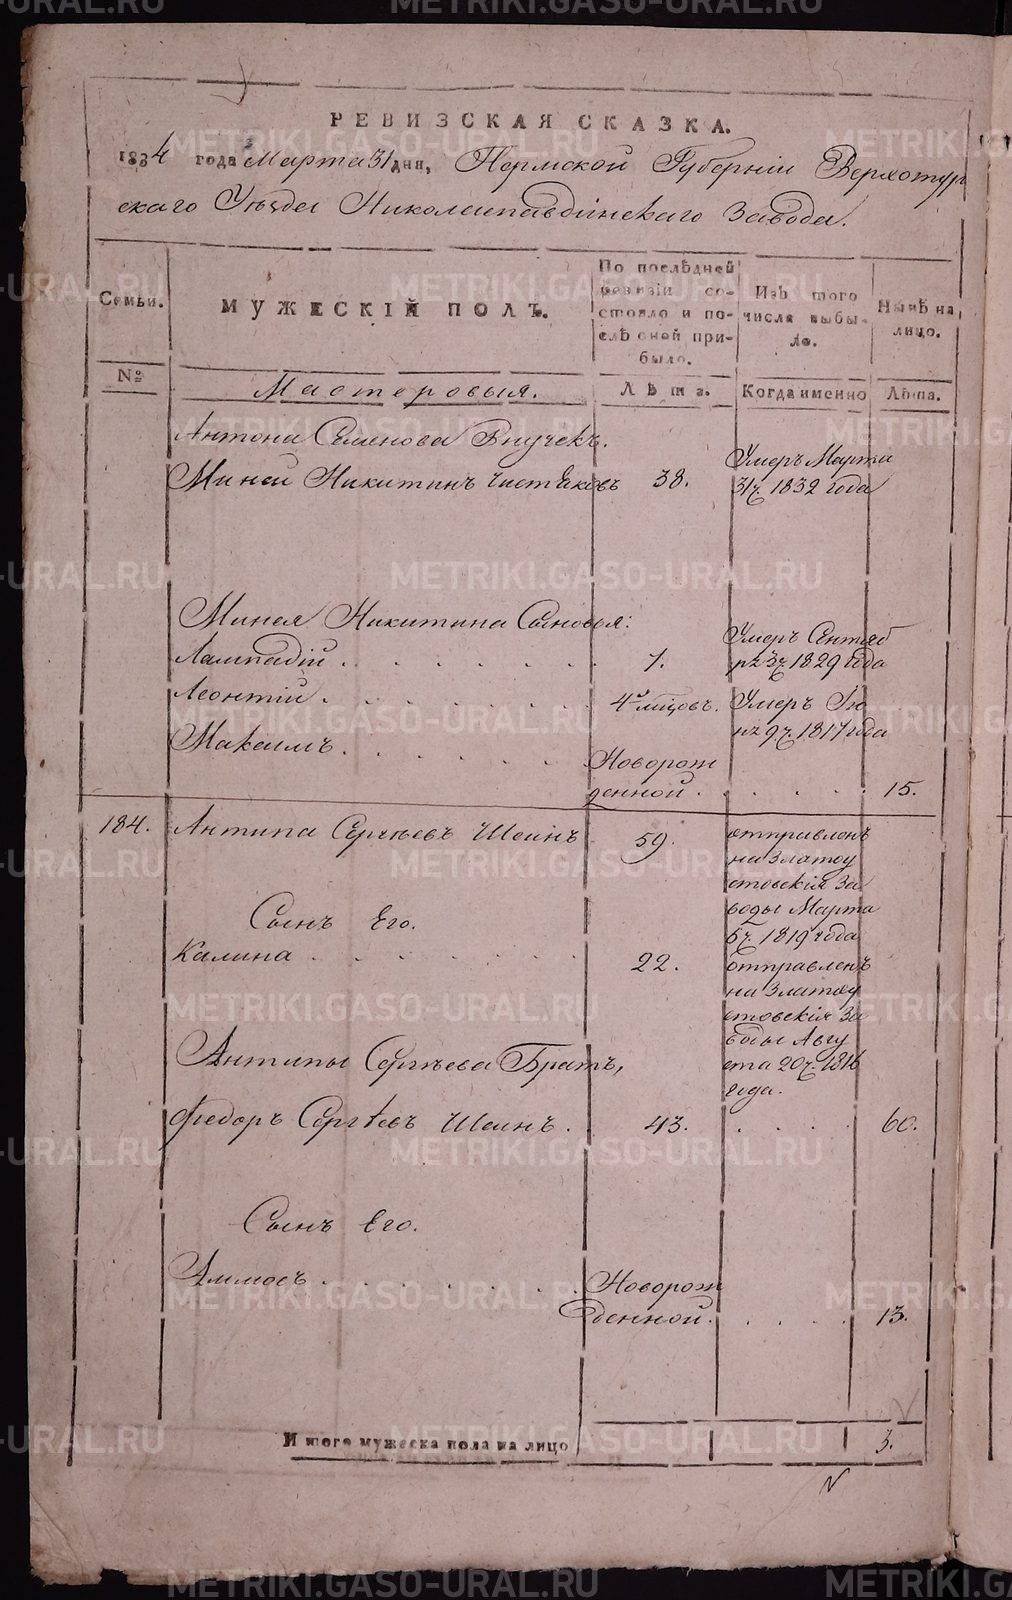 РЕВИЗСКАЯ СКАЗКА.
1834 года Марта 31 дня, Пермской Губерніи Верхотур
скаго Уѣзда Николаепавдинскаго Завода.
Семьи.
МУЖЕСКІЙ ПОЛЪ.
По послѣдней
ревизіи со-
стояло и по-
слѣ оной при-
было.
Изъ того
числа выбы-
ло.
Нынѣ на
лицо.
№
Мастеровыя.
Лѣта.
Когда именно
Лѣта.
Антона Семенова Внучекъ.
Миней Никитинъ Чистяковъ 38. Умеръ Марта
31 ч. 1832 года
Минея Никитина Сыновья:
Лампадій . . . . . . . 7. Умеръ Сентяб
ря 3 ч. 1829 года
Леонтій . . . . . . . 4 мѣсяцовъ. Умеръ Ію
ля 9 ч. 1817 года
Максимъ . . . . . . Новорож
денной . . . . . 15.
184. Антипа Сергѣевъ Шеинъ 59. отправленъ
на Златоу
стовскія За
воды Марта
5 ч. 1819 года
Сынъ Его.
Калина . . . . . . . 22. отправленъ
на Златоу
стовскія За
воды Авгу
ста 20 ч. 1816
года.
Антипы Сергѣева Братъ,
Федоръ Сергѣевъ Шеинъ . 43. . . . . 60.
Сынъ Его.
Аммосъ . . . . . . Новорож
денной . . . . . 13.
Итого мужеска пола на лицо 3.
METRIKI.GASO-URAL.RU